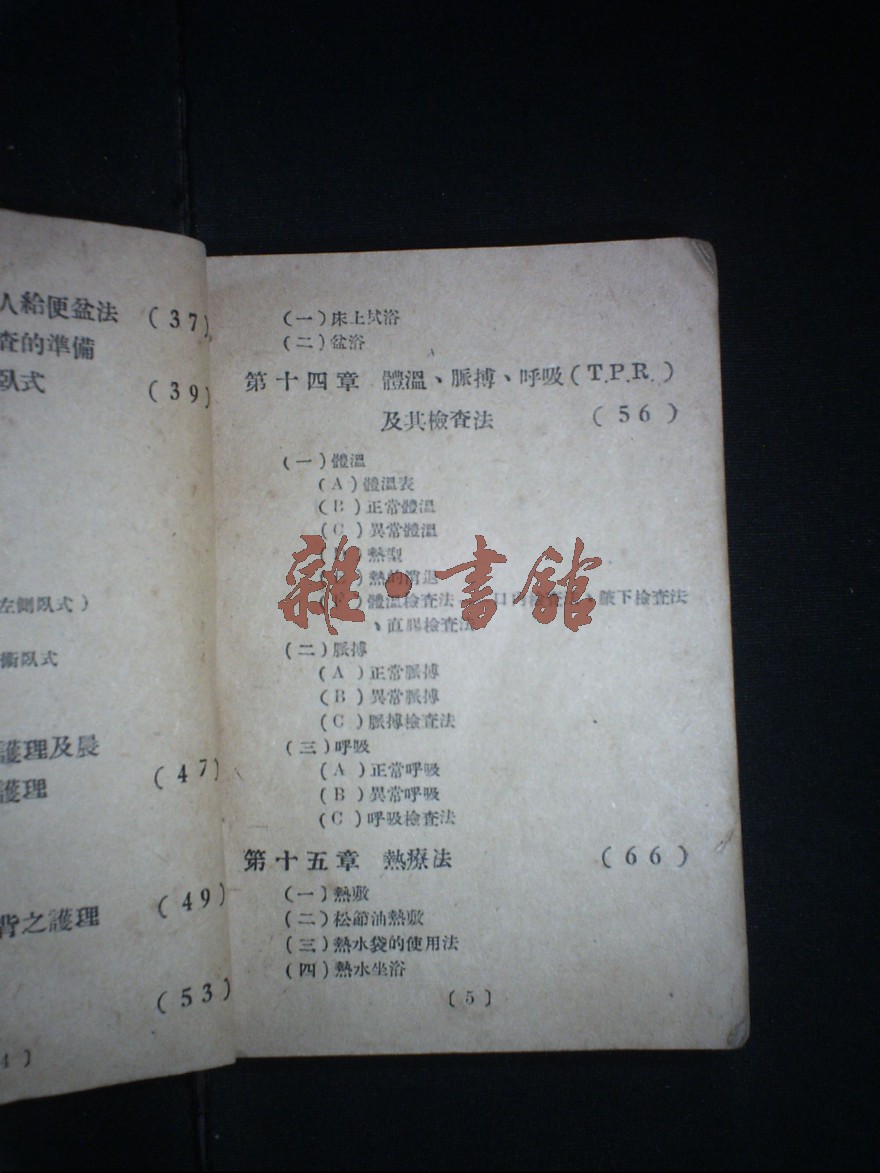 人給便盆法 (37)
查的準備
臥式 (39)
左側臥式)
衝臥式
護理及晨
護理 (47)
背之護理 (49)
(53)
4)
(一)床上拭浴
(二)盆浴
第十四章 體溫、脈搏、呼吸(T.P.R.)
及其檢查法 (56)
(一)體溫
(A)體溫表
(B)正常體溫
(C)異常體溫
(D)熱型
熱的消退
體溫檢查法 口內檢查法、腋下檢查法
、直腸檢查法
(二)脈搏
(A)正常脈搏
(B)異常脈搏
(C)脈搏檢查法
(三)呼吸
(A)正常呼吸
(B)異常呼吸
(C)呼吸檢查法
第十五章 熱療法 (66)
(一)熱敷
(二)松節油熱敷
(三)熱水袋的使用法
(四)熱水坐浴
(5)
雜·書館